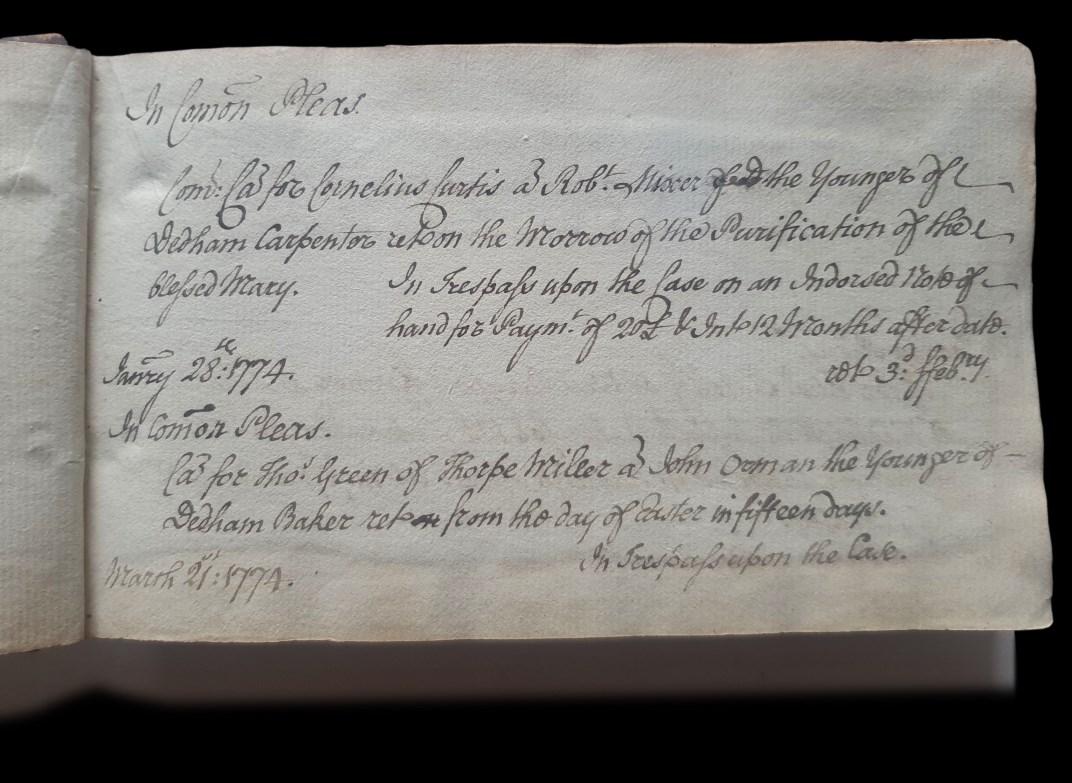 In Com̄on Pleas.
Com: Ca͞ for Cornelius Curtis a͞ Rob.t Mixer the Younger of
Dedham Carpenter ret on the Morrow of the Purification of the
blessed Mary. In Trespass upon the Case on an Indorsed Note of
hand for Paym.t of 20£ & Int 12 Months after date.
Janry 28:th 1774. ret 3:d ffeb.ry
In Com̄on Pleas.
Ca͞ for Tho.s Green of Thorpe Miller a͞ John Orman the Younger of
Dedham Baker ret from the day of Easter in fifteen days.
In Trespass upon the Case.
March 21:st 1774.